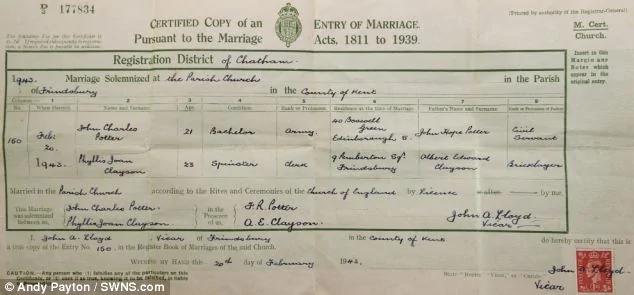 P/2 177834
CERTIFIED COPY of an ENTRY OF MARRIAGE.
Pursuant to the Marriage Acts, 1811 to 1939.
(Printed by authority of the Registrar-General)
M. Cert.
Church.
Insert in this
Margin any
Notes which
appear in the
original entry.
Registration District of Chatham.
1943. Marriage Solemnized at the Parish Church in the Parish
of Frindsbury in the County of Kent
Columns 1 2 3 4 5 6 7 8
No. When Married. Name and Surname Age Condition Rank or Profession Residence at the time of Marriage Father's Name and Surname Rank or Profession of Father
150 Feb: 20. 1943. John Charles Potter 21 Bachelor Army. 40 Boswell Green Edinborough, 5. John Hope Potter Civil Servant
Phyllis Joan Clayson 23 Spinster clerk 9 Pemberton Sqr Frindsbury Albert Edward Clayson Bricklayer
Married in the Parish Church according to the Rites and Ceremonies of the Church of England by Licence or after by me,
This Marriage was solemnized between us, John Charles Potter Phyllis Joan Clayson. in the Presence of us, F.R. Potter A.E. Clayson. John A. Lloyd Vicar
I, John A. Lloyd, Vicar of Frindsbury in the County of Kent do hereby certify that this is
a true copy of the Entry No. 150, in the Register Book of Marriages of the said Church.
WITNESS MY HAND this 20th day of February 1943,
CAUTION.—Any person who (1) falsifies any of the particulars on this
John A. Lloyd
Vicar
© Andy Payton / SWNS.com